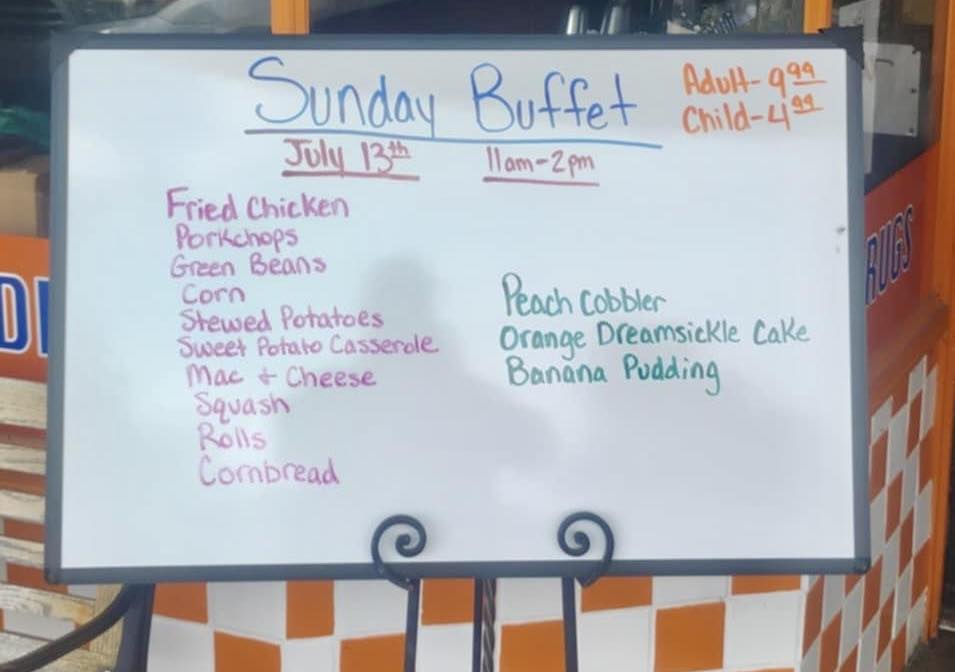 Sunday Buffet
Adult-9.99
Child-4.99
July 13th 11am-2pm
Fried Chicken
Porkchops
Green Beans
Corn
Stewed Potatoes
Sweet Potato Casserole
Mac + Cheese
Squash
Rolls
Cornbread
Peach Cobbler
Orange Dreamsickle Cake
Banana Pudding
D
RUGS